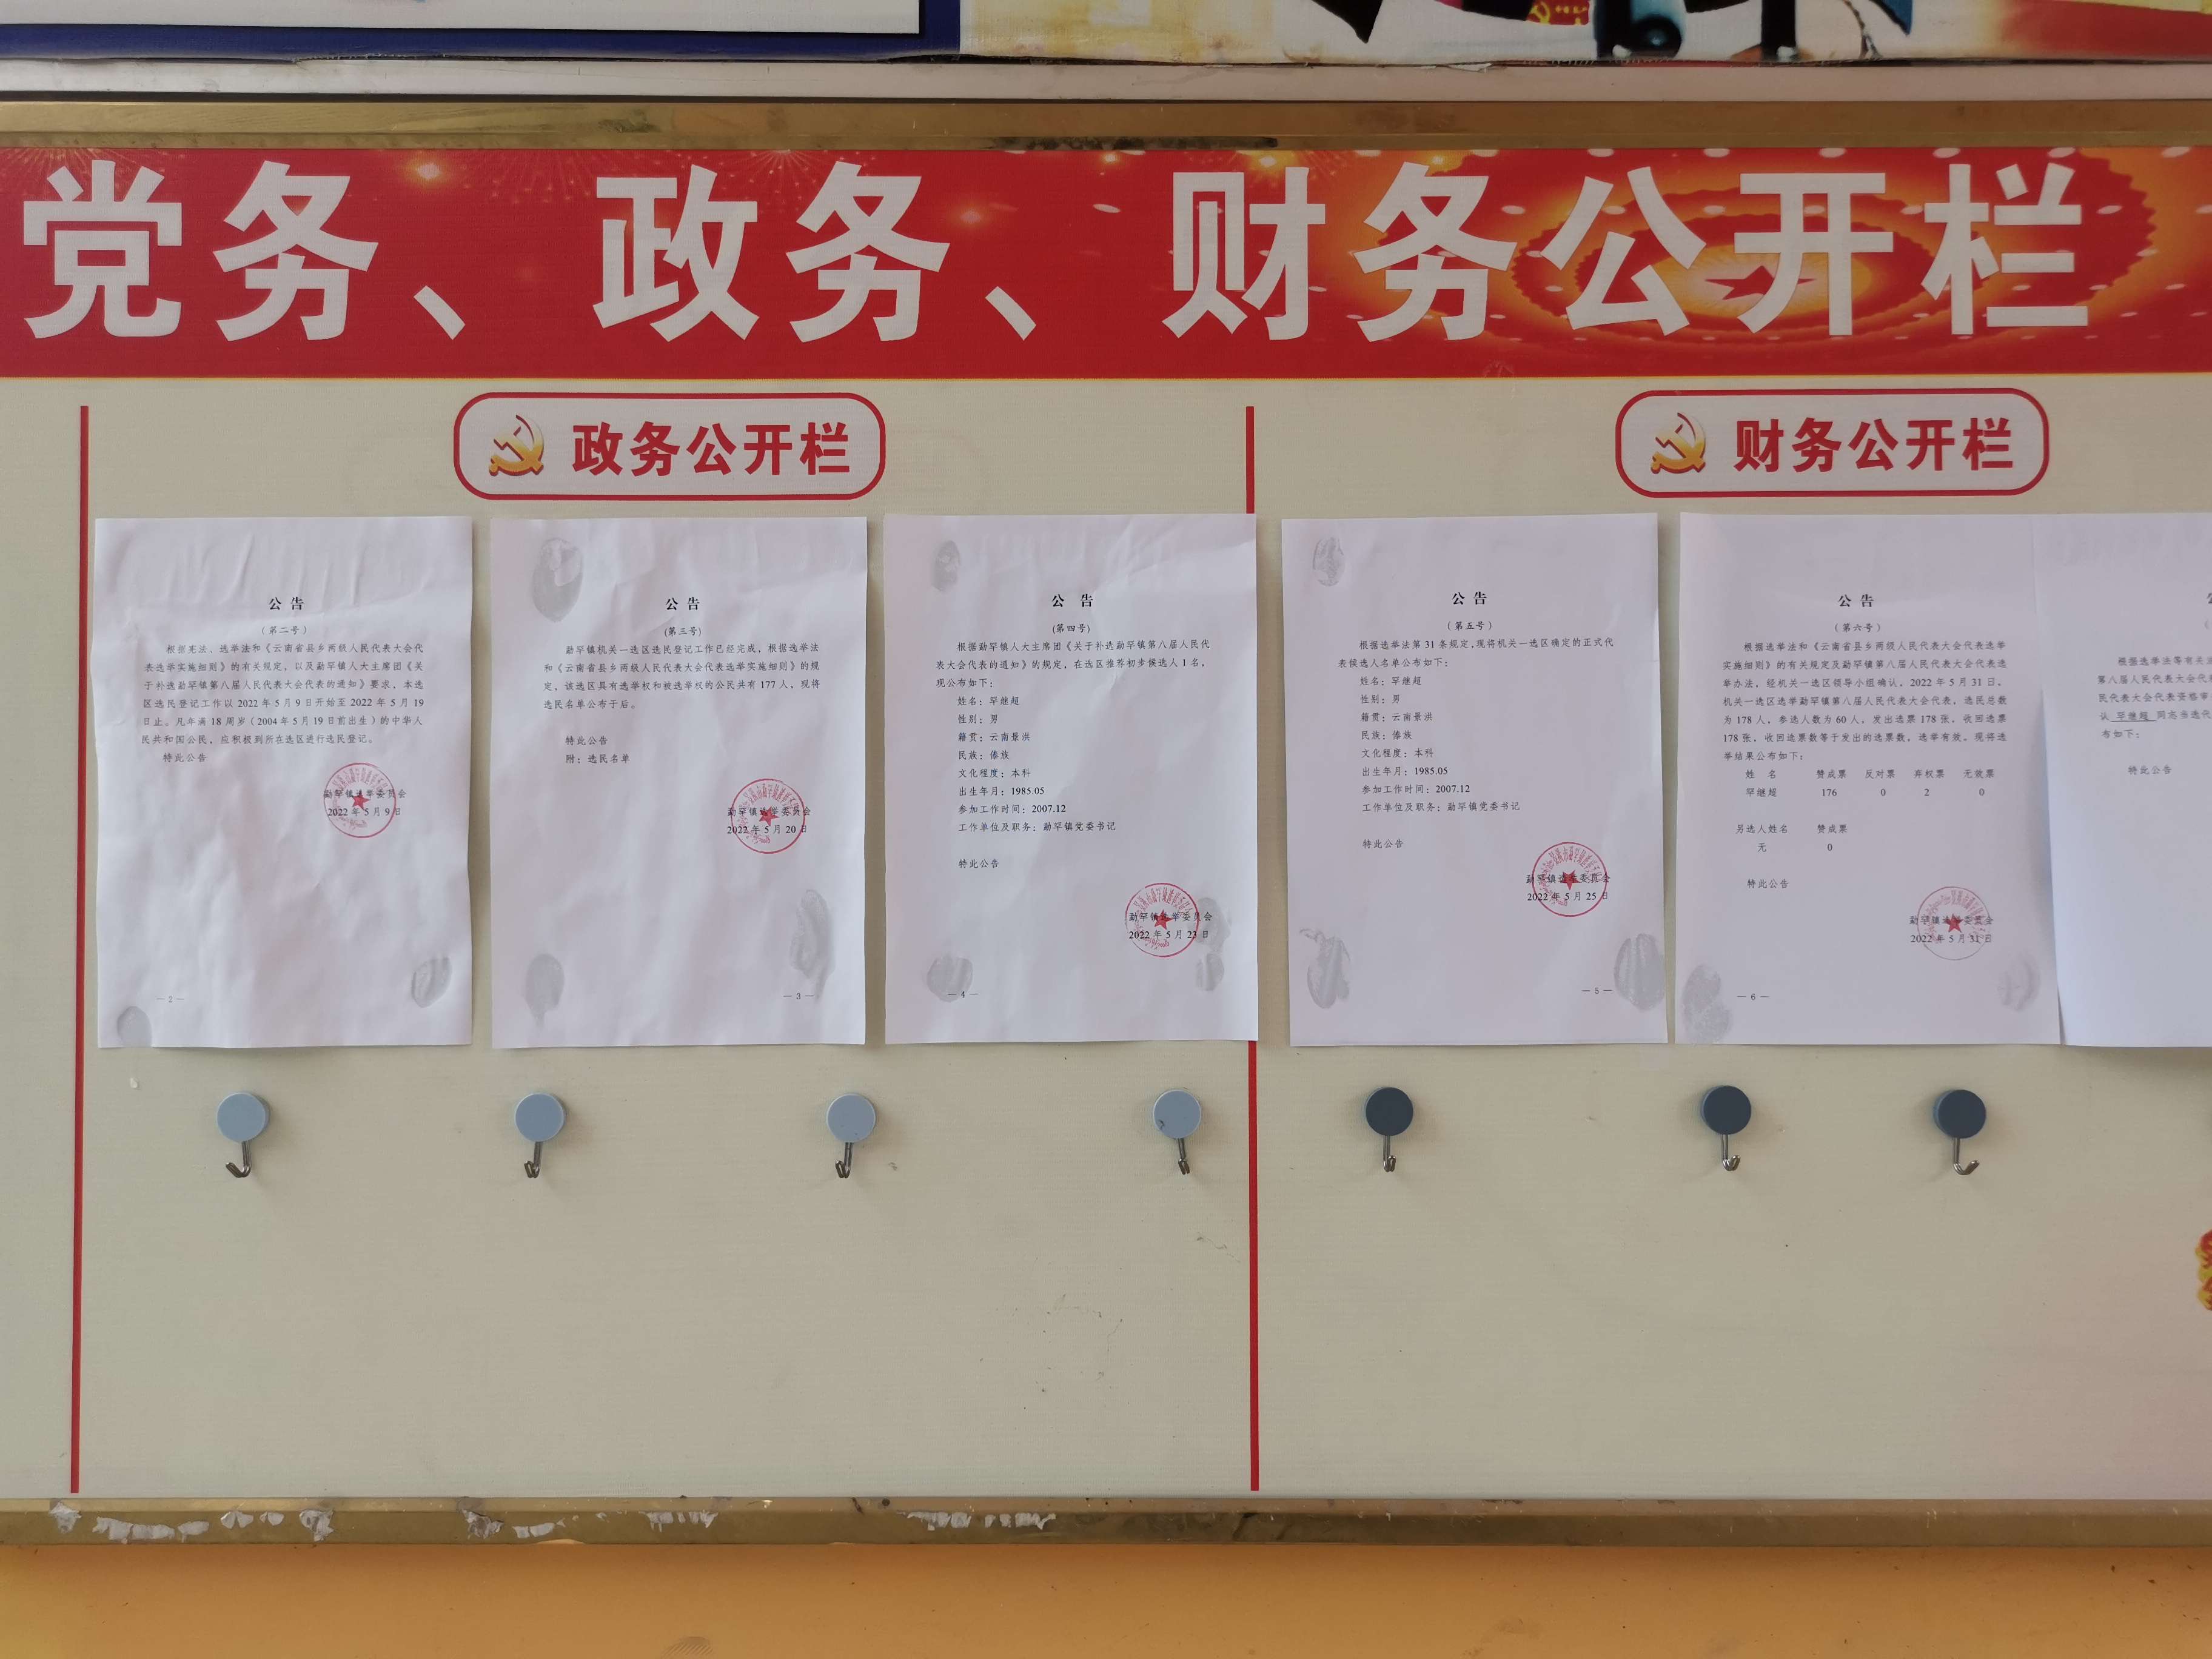 党务、政务、财务公开栏
政务公开栏
财务公开栏
公 告
（第二号）
根据宪法、选举法和《云南省县乡两级人民代表大会代
表选举实施细则》的有关规定，以及勐罕镇人大主席团《关
于补选勐罕镇第八届人民代表大会代表的通知》要求，本选
区选民登记工作以 2022 年 5 月 9 日开始至 2022 年 5 月 19
日止。凡年满 18 周岁（2004 年 5 月 19 日前出生）的中华人
民共和国公民，应积极到所在选区进行选民登记。
特此公告
勐罕镇选举委员会
2022 年 5 月 9 日
— 2 —
公 告
(第三号)
勐罕镇机关一选区选民登记工作已经完成，根据选举法
和《云南省县乡两级人民代表大会代表选举实施细则》的规
定，该选区具有选举权和被选举权的公民共有 177 人，现将
选民名单公布于后。
特此公告
附：选民名单
勐罕镇选举委员会
2022 年 5 月 20 日
— 3 —
公 告
(第四号)
根据勐罕镇人大主席团《关于补选勐罕镇第八届人民代
表大会代表的通知》的规定，在选区推荐初步候选人 1 名，
现公布如下：
姓名：罕继超
性别：男
籍贯：云南景洪
民族：傣族
文化程度：本科
出生年月：1985.05
参加工作时间：2007.12
工作单位及职务：勐罕镇党委书记
特此公告
勐罕镇选举委员会
2022 年 5 月 23 日
— 4 —
公 告
（第五号）
根据选举法第 31 条规定,现将机关一选区确定的正式代
表候选人名单公布如下：
姓名：罕继超
性别：男
籍贯：云南景洪
民族：傣族
文化程度：本科
出生年月：1985.05
参加工作时间：2007.12
工作单位及职务：勐罕镇党委书记
特此公告
勐罕镇选举委员会
2022 年 5 月 25 日
— 5 —
公 告
（第六号）
根据选举法和《云南省县乡两级人民代表大会代表选举
实施细则》的有关规定及勐罕镇第八届人民代表大会代表选
举办法，经机关一选区领导小组确认，2022 年 5 月 31 日，
机关一选区选举勐罕镇第八届人民代表大会代表，选民总数
为 178 人，参选人数为 60 人，发出选票 178 张，收回选票
178 张，收回选票数等于发出的选票数，选举有效。现将选
举结果公布如下：
姓 名 赞成票 反对票 弃权票 无效票
罕继超 176 0 2 0
另选人姓名 赞成票
无 0
特此公告
勐罕镇选举委员会
2022 年 5 月 31 日
— 6 —
根据选举法等有关
第八届人民代表大会代
民代表大会代表资格审
认 罕继超 同志当选代
布如下：
特此公告